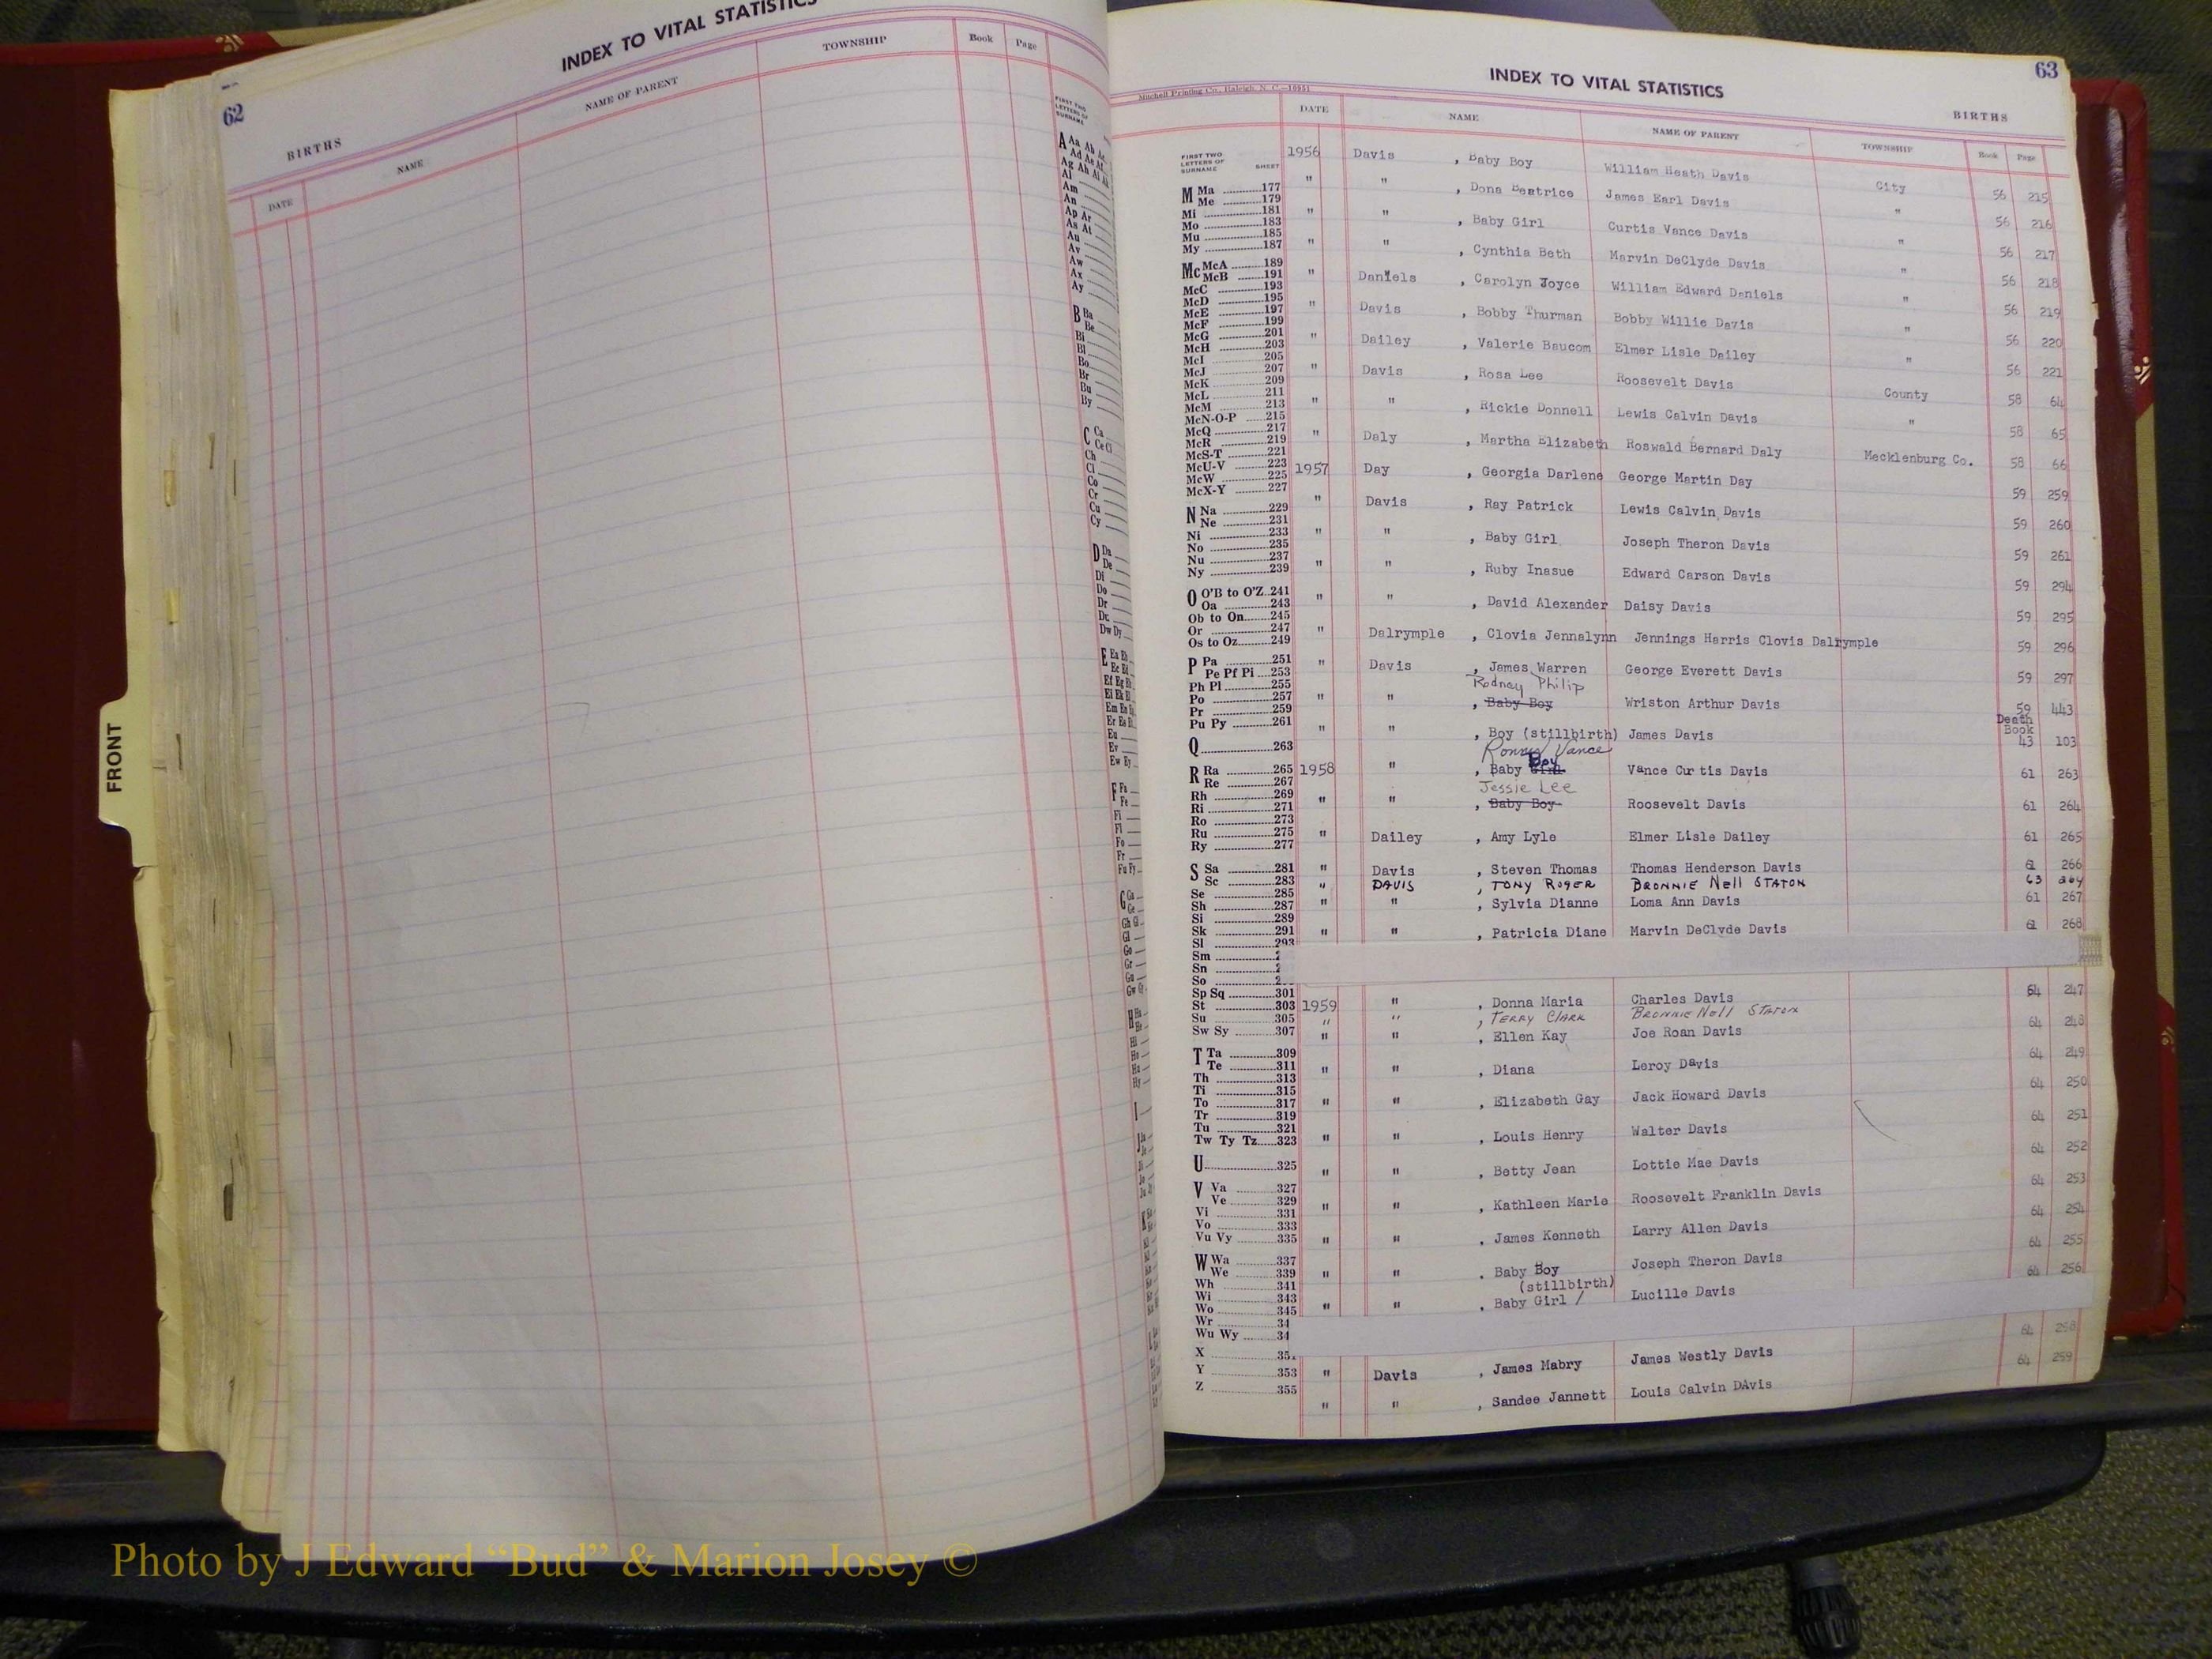 INDEX TO VITAL STATISTICS
62
BIRTHS
DATE NAME NAME OF PARENT TOWNSHIP Book Page
FRONT
63
INDEX TO VITAL STATISTICS
BIRTHS
Mitchell Printing Co., Raleigh, N. C.
DATE NAME NAME OF PARENT TOWNSHIP Book Page
FIRST TWO LETTERS OF SURNAME SHEET
1956 Davis , Baby Boy William Heath Davis City 56 215
" " , Dona Beatrice James Earl Davis " 56 216
" " , Baby Girl Curtis Vance Davis " 56 217
" " , Cynthia Beth Marvin DeClyde Davis " 56 218
" Daniels , Carolyn Joyce William Edward Daniels " 56 219
" Davis , Bobby Thurman Bobby Willie Davis " 56 220
" Dailey , Valerie Baucom Elmer Lisle Dailey " 56 221
" Davis , Rosa Lee Roosevelt Davis County 58 64
" " , Rickie Donnell Lewis Calvin Davis " 58 65
" Daly , Martha Elizabeth Roswald Bernard Daly Mecklenburg Co. 58 66
1957 Day , Georgia Darlene George Martin Day 59 259
" Davis , Ray Patrick Lewis Calvin Davis 59 260
" " , Baby Girl Joseph Theron Davis 59 261
" " , Ruby Inasue Edward Carson Davis 59 294
" " , David Alexander Daisy Davis 59 295
" Dalrymple , Clovia Jennalynn Jennings Harris Clovis Dalrymple 59 296
" Davis , James Warren George Everett Davis 59 297
Rodney Philip
" " , Baby Boy Wriston Arthur Davis 59 443
" " , Boy (stillbirth) James Davis Death Book 43 103
Vance
Boy
1958 " , Baby Girl Vance Curtis Davis 61 263
Jessie Lee
" " , Baby Boy Roosevelt Davis 61 264
" Dailey , Amy Lyle Elmer Lisle Dailey 61 265
" Davis , Steven Thomas Thomas Henderson Davis 61 266
" DAVIS , TONY ROGER BRONNIE Nell STATON 63 204
" " , Sylvia Dianne Loma Ann Davis 61 267
" " , Patricia Diane Marvin DeClyde Davis 61 268
1959 " , Donna Maria Charles Davis 64 247
" " , TERRY CLARK BRONNIE Nell STATON
" " , Ellen Kay Joe Roan Davis 64 248
" " , Diana Leroy Davis 64 249
" " , Elizabeth Gay Jack Howard Davis 64 250
" " , Louis Henry Walter Davis 64 251
" " , Betty Jean Lottie Mae Davis 64 252
" " , Kathleen Marie Roosevelt Franklin Davis 64 253
" " , James Kenneth Larry Allen Davis 64 254
" " , Baby Boy Joseph Theron Davis 64 255
(stillbirth)
" " , Baby Girl / Lucille Davis 64 256
" Davis , James Mabry James Westly Davis 64 258
" " , Sandee Jannett Louis Calvin DAvis 64 259
M Ma 177
Me 179
Mi 181
Mo 183
Mu 185
My 187
Mc McA 189
McB 191
McC 193
McD 195
McE 197
McF 199
McG 201
McH 203
McI 205
McJ 207
McK 209
McL 211
McM 213
McN-O-P 215
McQ 217
McR 219
McS-T 221
McU-V 223
McW 225
McX-Y 227
N Na 229
Ne 231
Ni 233
No 235
Nu 237
Ny 239
O O'B to O'Z 241
Oa 243
Ob to On 245
Or 247
Os to Oz 249
P Pa 251
Pe Pf Pi 253
Ph Pl 255
Po 257
Pr 259
Pu Py 261
Q 263
R Ra 265
Re 267
Rh 269
Ri 271
Ro 273
Ru 275
Ry 277
S Sa 281
Sc 283
Se 285
Sh 287
Si 289
Sk 291
Sl 293
Sm
Sn
So
Sp Sq 301
St 303
Su 305
Sw Sy 307
T Ta 309
Te 311
Th 313
Ti 315
To 317
Tr 319
Tu 321
Tw Ty Tz 323
U 325
V Va 327
Ve 329
Vi 331
Vo 333
Vu Vy 335
W Wa 337
We 339
Wh 341
Wi 343
Wo 345
Wr 34
Wu Wy 34
X 35
Y 353
Z 355
Photo by J Edward “Bud” & Marion Josey ©